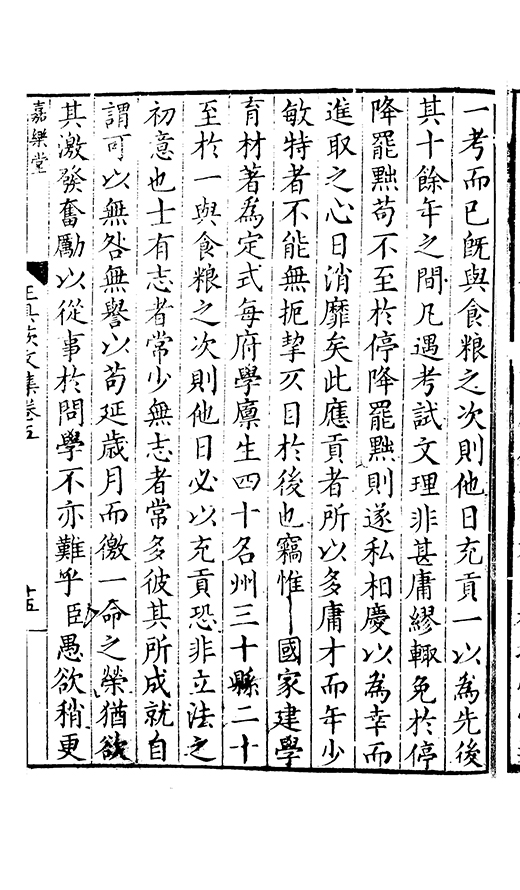 一考而已旣與食粮之次則他日充貢一以為先後
其十餘年之間凡遇考試文理非甚庸繆輙免於停
降罷黜苟不至於停降罷黜則遂私相慶以為幸而
進取之心日消靡矣此應貢者所以多庸才而年少
敏特者不能無扼挚
於後也竊惟國家建學
育材著為定式每府學廪生四十名州三十縣二十
至於一與食粮之次則他日必以充貢恐非立法之
初意也士有志者常少無志者常多彼其所成就自
謂可以無咎無譽以苟延歳月而徼一命之榮猶欲
其激發奮勵以從事於問學不亦難乎臣愚欲稍更
嘉樂堂
文集卷五
十五